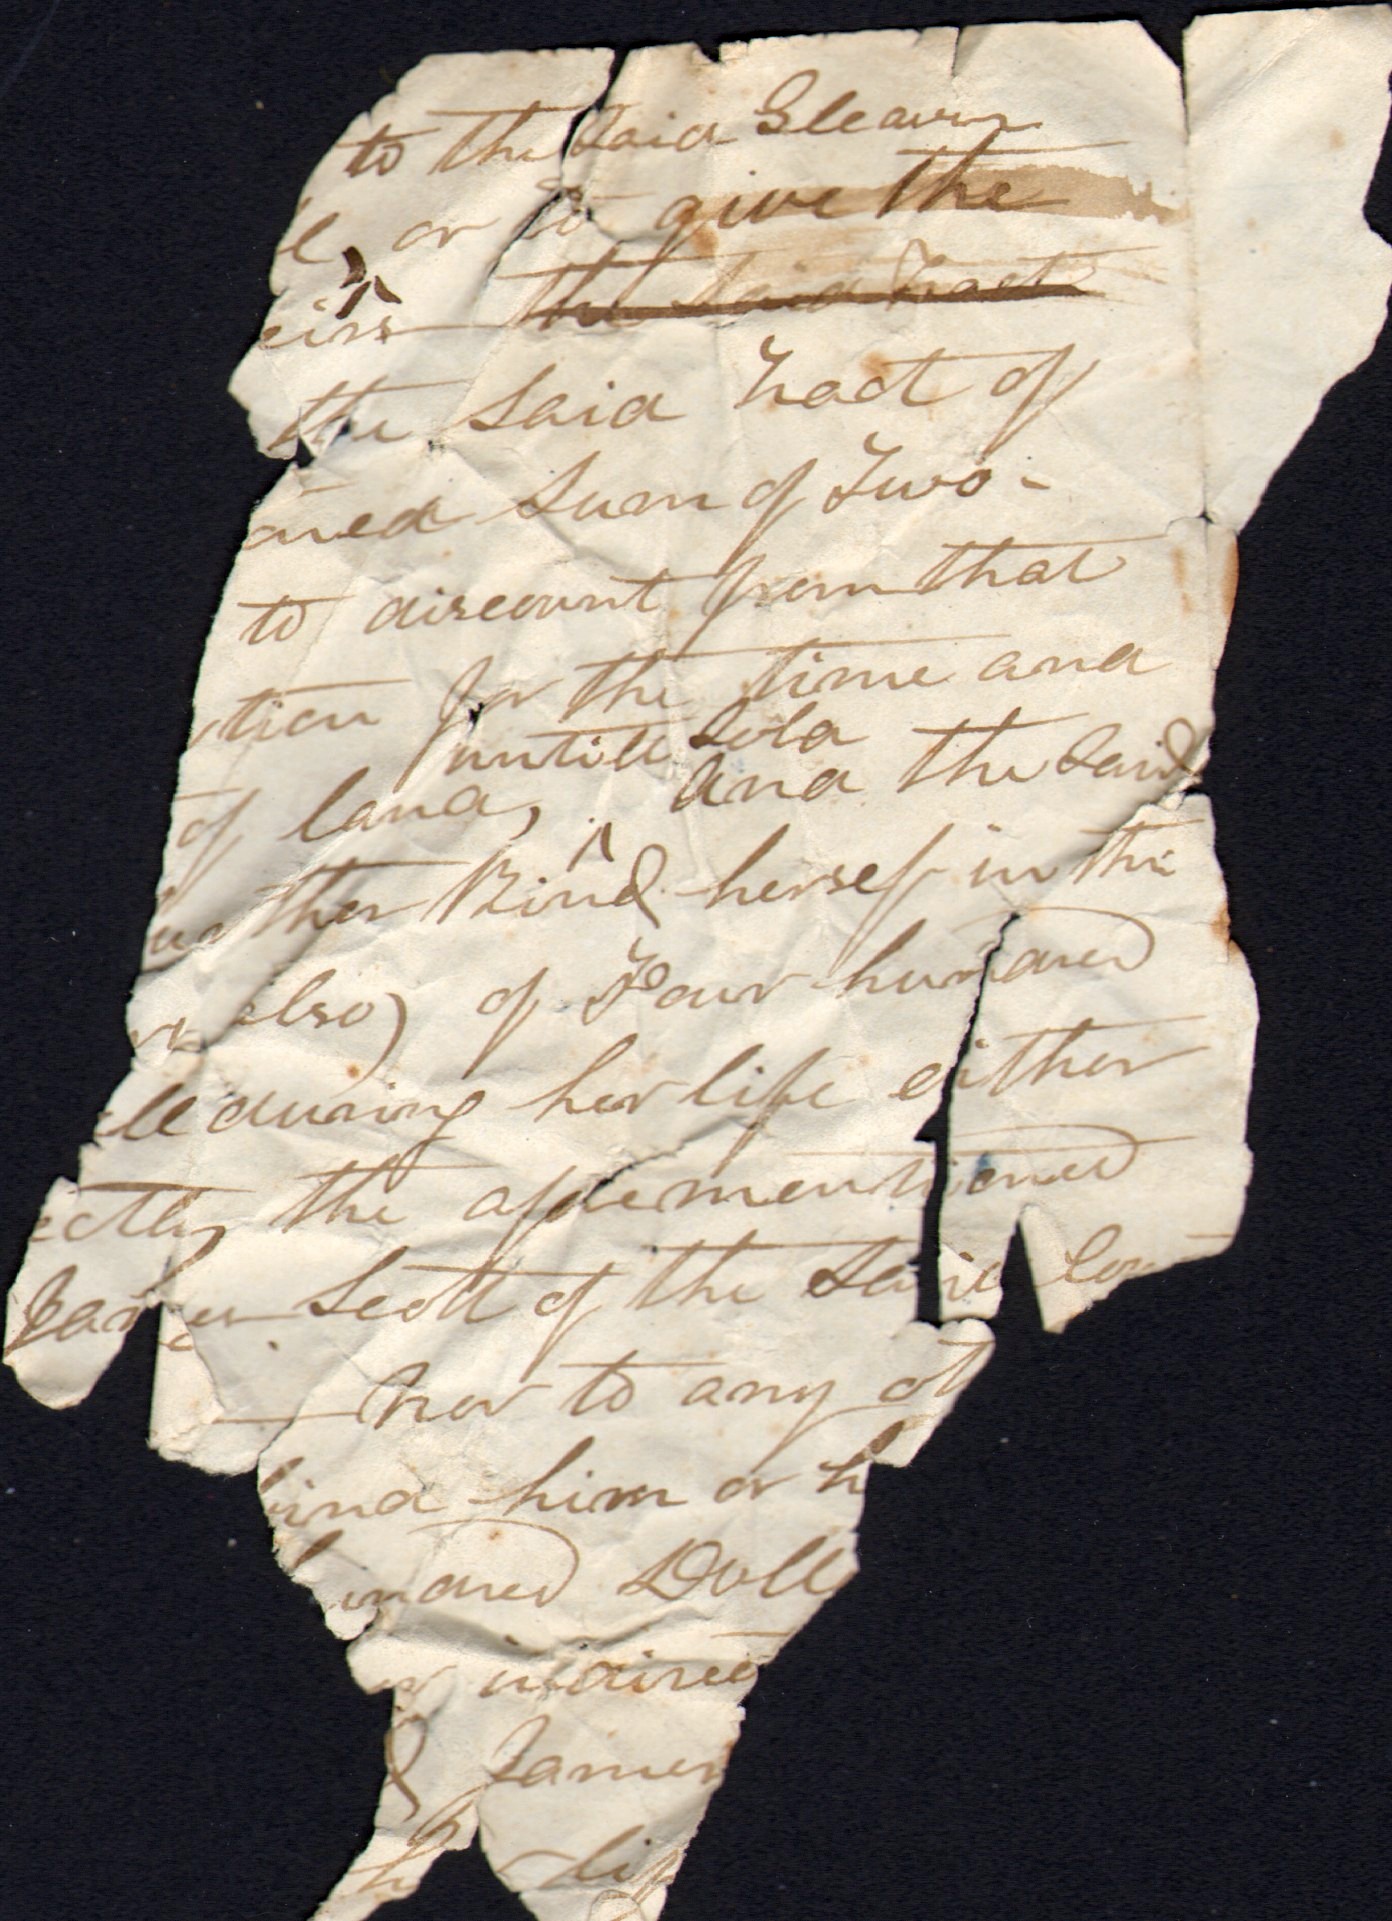 to the said Gleaven
l, or to give the
eirs the said tract
the said tract of
oned Sum of Two-
to discount from that
tion for the time and
untill sold
of land, ^ and the said
urther Bind herself in the
also) of Four hundred
ll during her life either
ectly the aforementioned
James Scott of the said Cou
nor to any ot
bind him or h
hundred Doll
or indirect
d James
lif